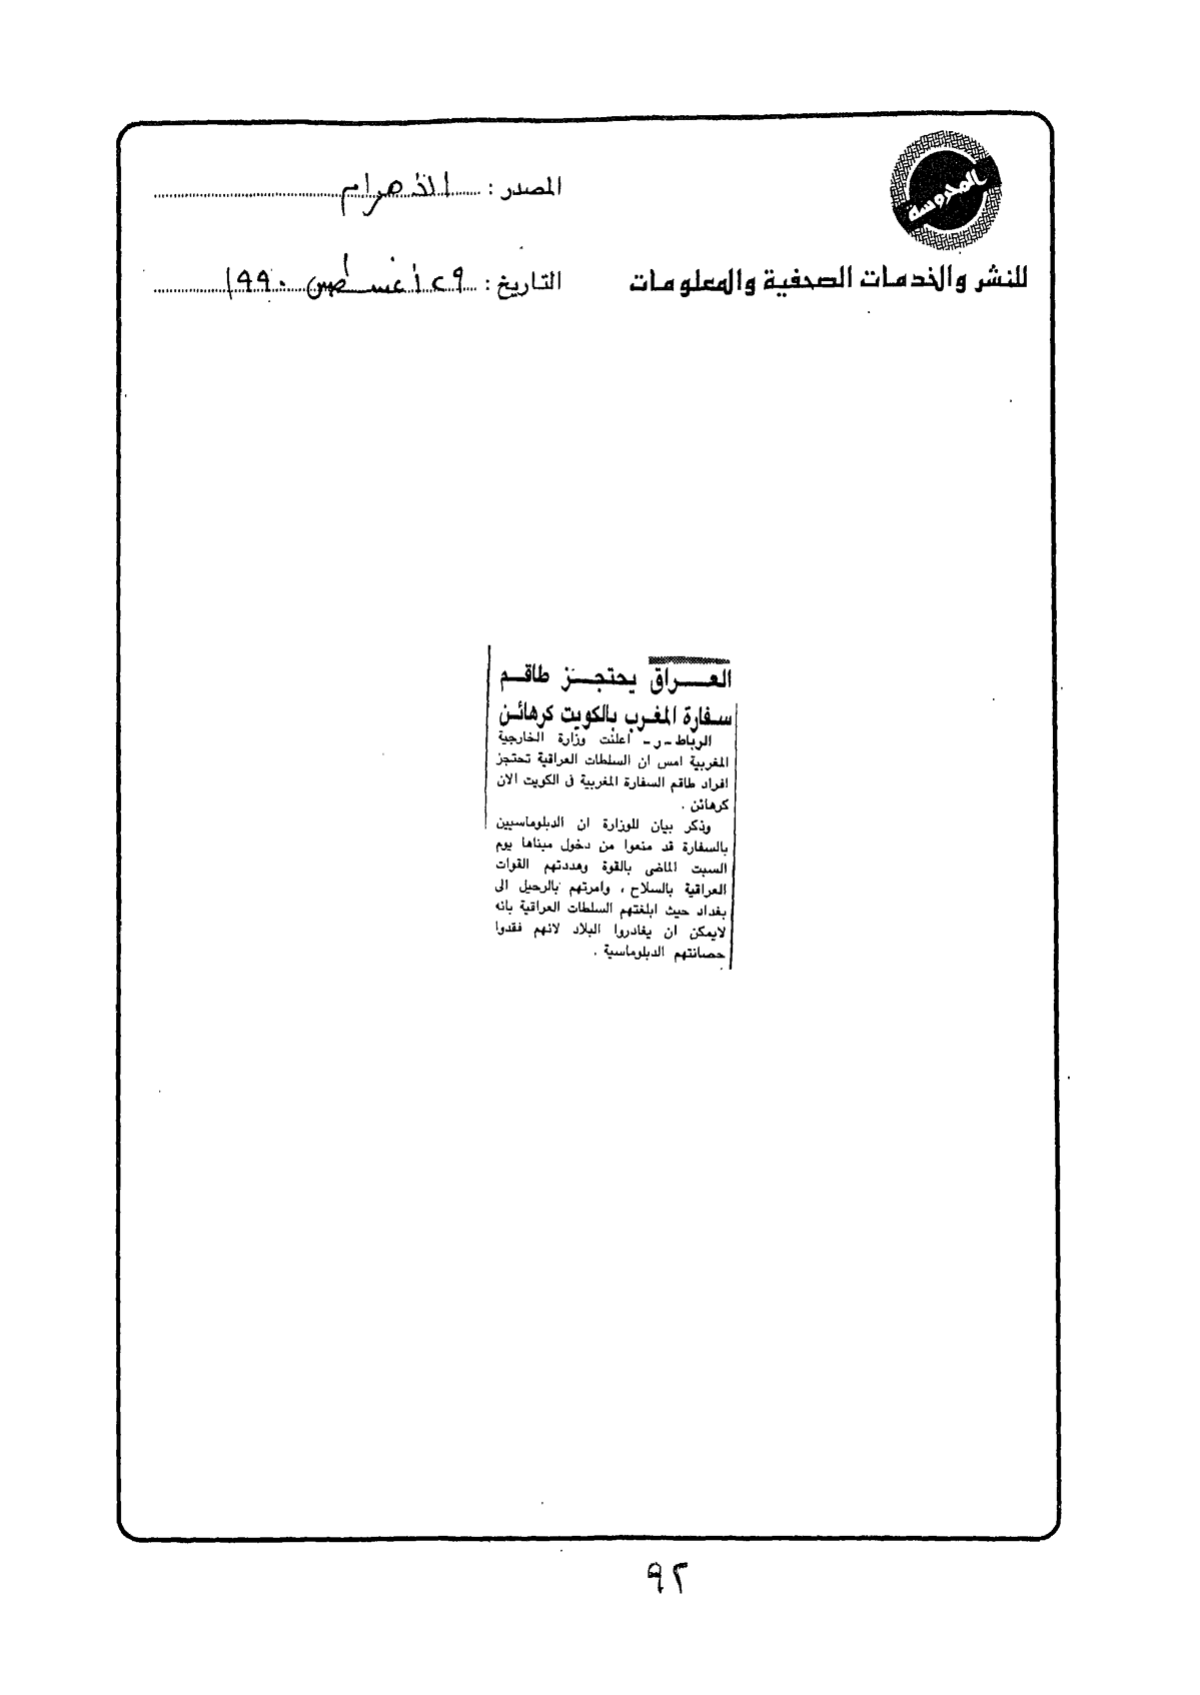 المحروسة
للنشر والخدمات الصحفية والمعلومات
المصدر : الأهرام
التاريخ : ٢٩ أغسطس ١٩٩٠
العراق يحتجز طاقم
سفارة المغرب بالكويت كرهائن
الرباط - ر - اعلنت وزارة الخارجية
المغربية امس ان السلطات العراقية تحتجز
افراد طاقم السفارة المغربية فى الكويت الان
كرهائن .
وذكر بيان للوزارة ان الدبلوماسيين
بالسفارة قد منعوا من دخول مبناها يوم
السبت الماضى بالقوة وهددتهم القوات
العراقية بالسلاح ، وامرتهم بالرحيل الى
بغداد حيث ابلغتهم السلطات العراقية بانه
لايمكن ان يغادروا البلاد لانهم فقدوا
حصانتهم الدبلوماسية .
٩٢